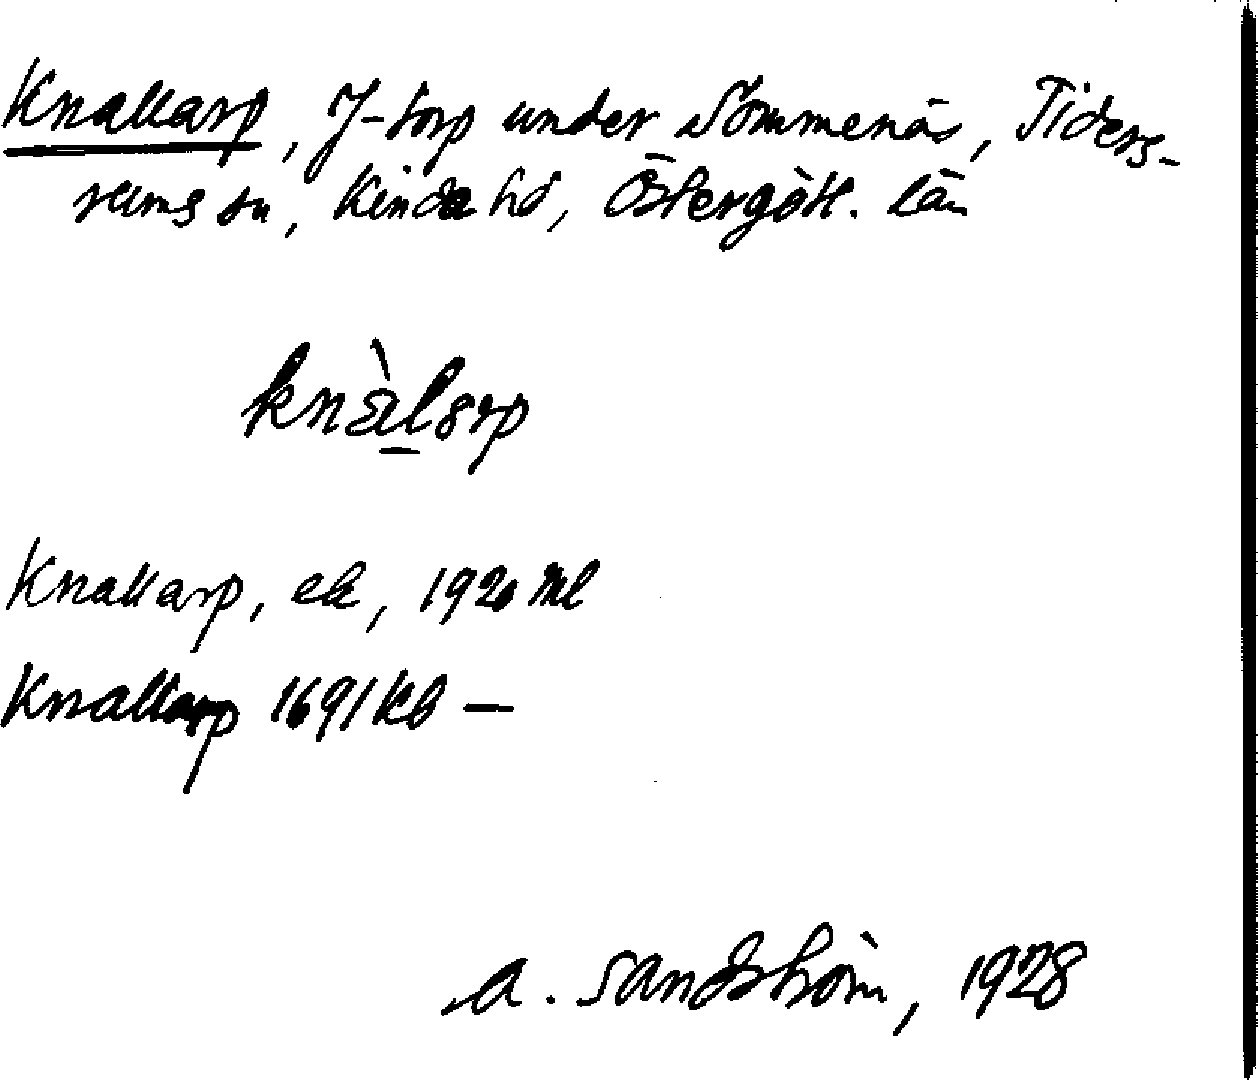 Knallarp, J-torp under Sommenäs, Tiders-
rums sn, Kinda hd, Östergötl. län
knàlarp
Knallarp, ek, 1920 Ml
Knallarp 1691 Kb —
A. Sandström, 1928